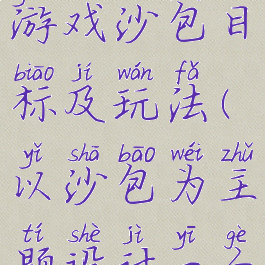 游戏沙包目
biāo jí wán fǎ
标及玩法(
yǐ shā bāo wéi zhǔ
以沙包为主
tí shè jì yī gè
题设计一个